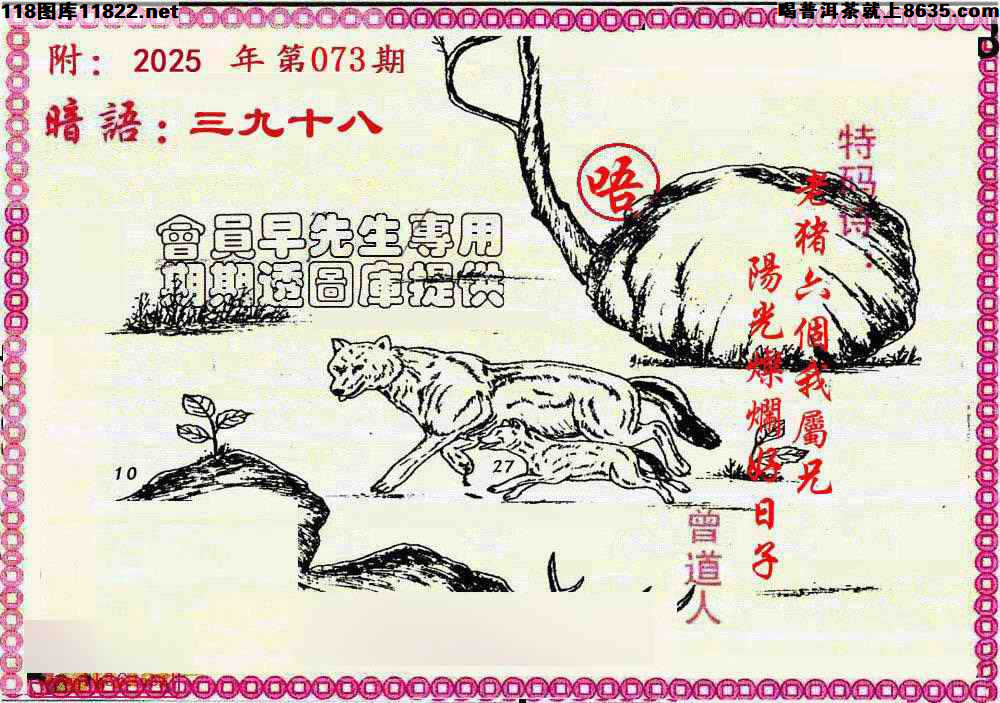 118图库11822.net
喝普洱茶就上8635.com
附：2025 年第073期
暗語：三九十八
唔
會員早先生專用
期期透圖庫提供
特码诗：
老猪六個我屬兄
陽光燦爛好日子
10
27
曾道人